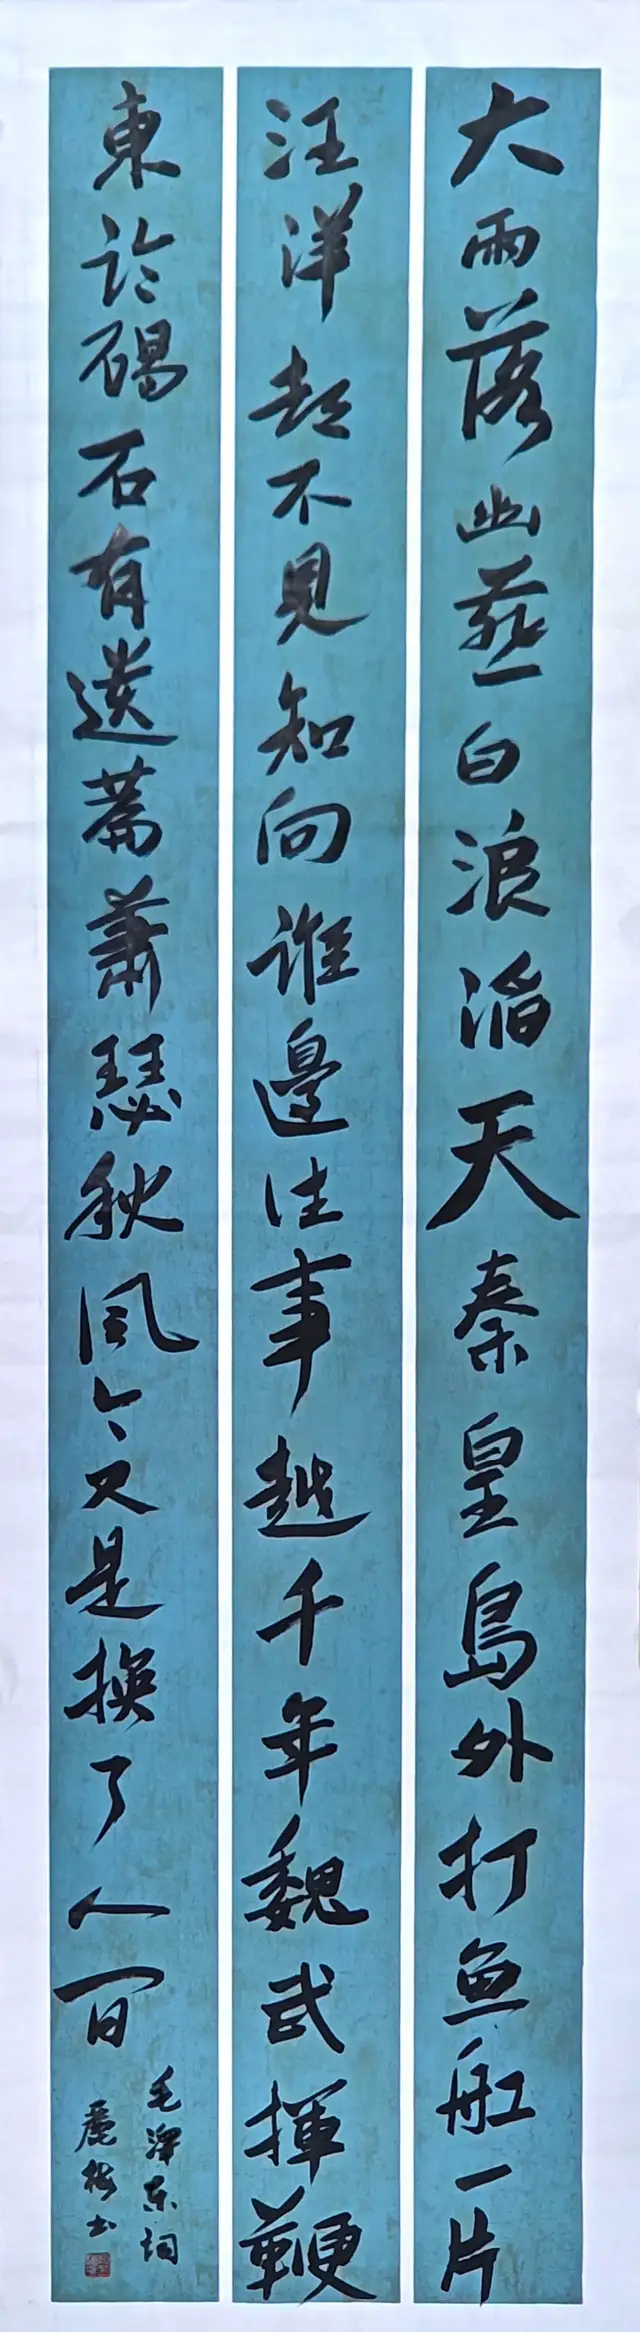 大雨落幽燕白浪滔天秦皇島外打鱼船一片
汪洋都不見知向誰邊往事越千年魏武揮鞭
東臨碣石有遺篇蕭瑟秋風今又是換了人間
毛澤東詞
麗梅书